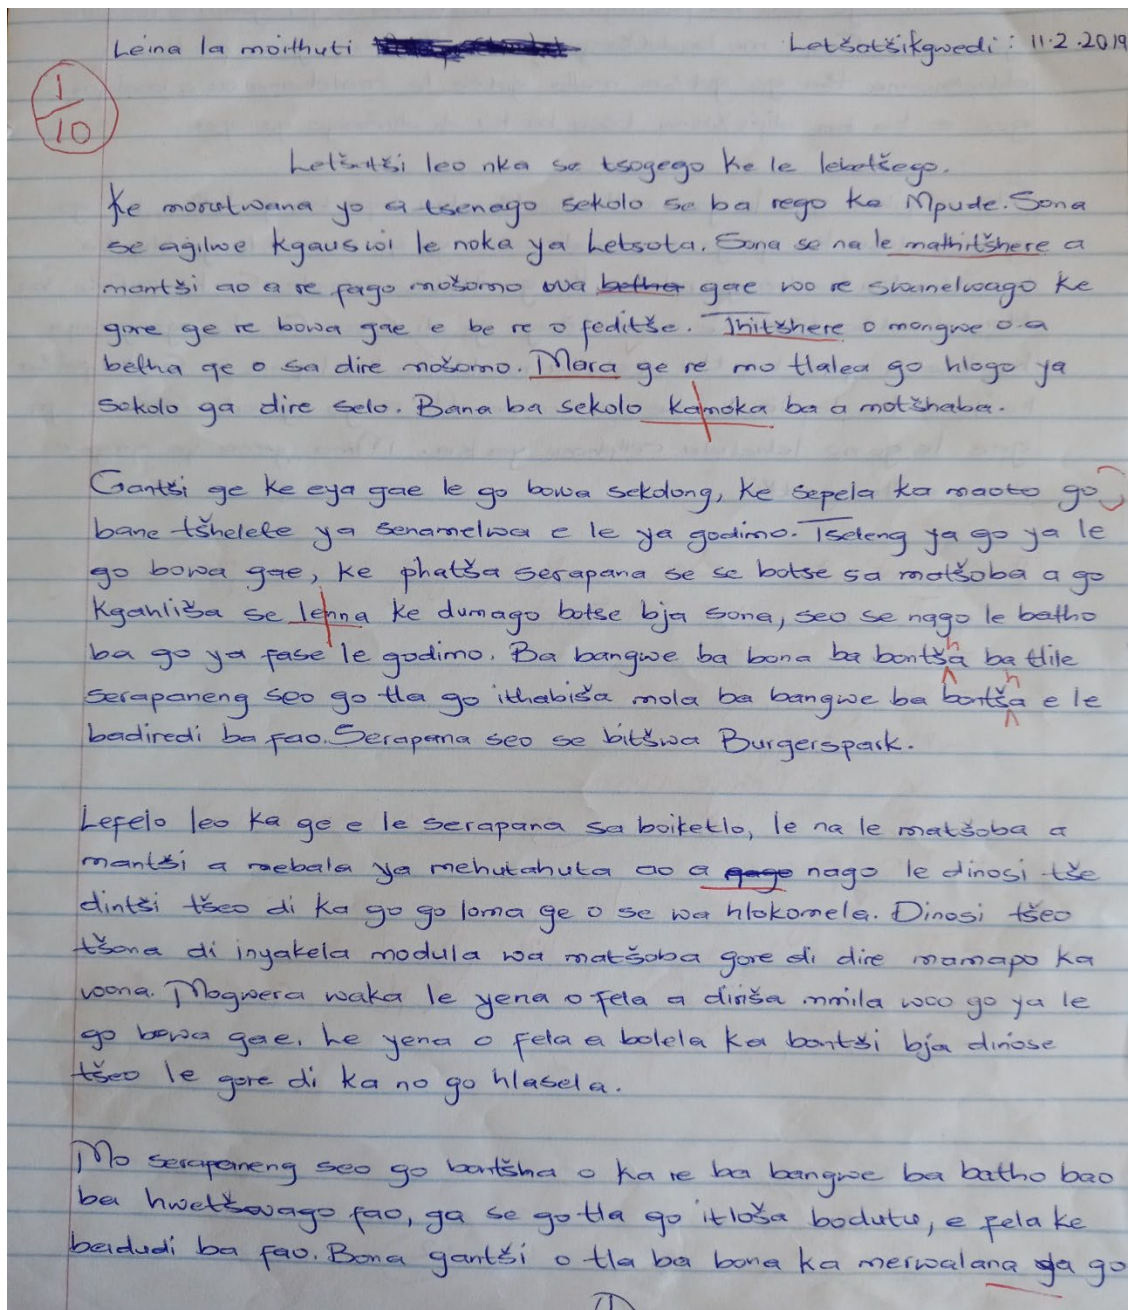 Leina la moithuti Letšatšikgwedi : 11.2.2019
1/10
Letšatši leo nka se tsogego ke le lebatšego.
Ke morutwana yo a tsenago sekolo se ba rego ke Mpude. Sona
se agilwe kgauswi le noka ya Letsota. Sona se na le mathitšhere a
mantši ao a re fago mošomo wa betha gae wo re swanelwago ke
gore ge re bowa gae e be re o feditše. Thitšhere o mongwe o a
betha ge o sa dire mošomo. Mara ge re mo tlalea go hlogo ya
sekolo ga dire selo. Bana ba sekolo kamoka ba a motšhaba.
Gantši ge ke eya gae le go bowa sekolong, ke sepela ka maoto go
bane tšhelete ya senamelwa e le ya godimo. Tseleng ya go ya le
go bowa gae, ke phatša serapana se se botse sa matšoba a go
kgahliša se lenna ke dumago botse bja sona, seo se nago le batho
ba go ya fase le godimo. Ba bangwe ba bona ba bontšha ba tlile
serapaneng seo go tla go ithabiša mola ba bangwe ba bontšha e le
badiredi ba fao. Serapana seo se bitšwa Burgerspark.
Lefelo leo ka ge e le serapana sa boiketlo, le na le matšoba a
mantši a mebala ya mehutahuta ao a gago nago le dinosi tše
dintši tšeo di ka go go loma ge o se wa hlokomela. Dinosi tšeo
tšona di inyakela modula wa matšoba gore di dire mamapo ka
woona. Mogwera waka le yena o fela a diriša mmila woo go ya le
go bowa gae, le yena o fela a bolela ka bontši bja dinose
tšeo le gore di ka no go hlasela.
Mo serapaneng seo go bontšha o ka re ba bangwe ba batho bao
ba hwetšwago fao, ga se go tla go itloša bodutu, e fela ke
badudi ba fao. Bona gantši o tla ba bona ka merwalana ya go
1